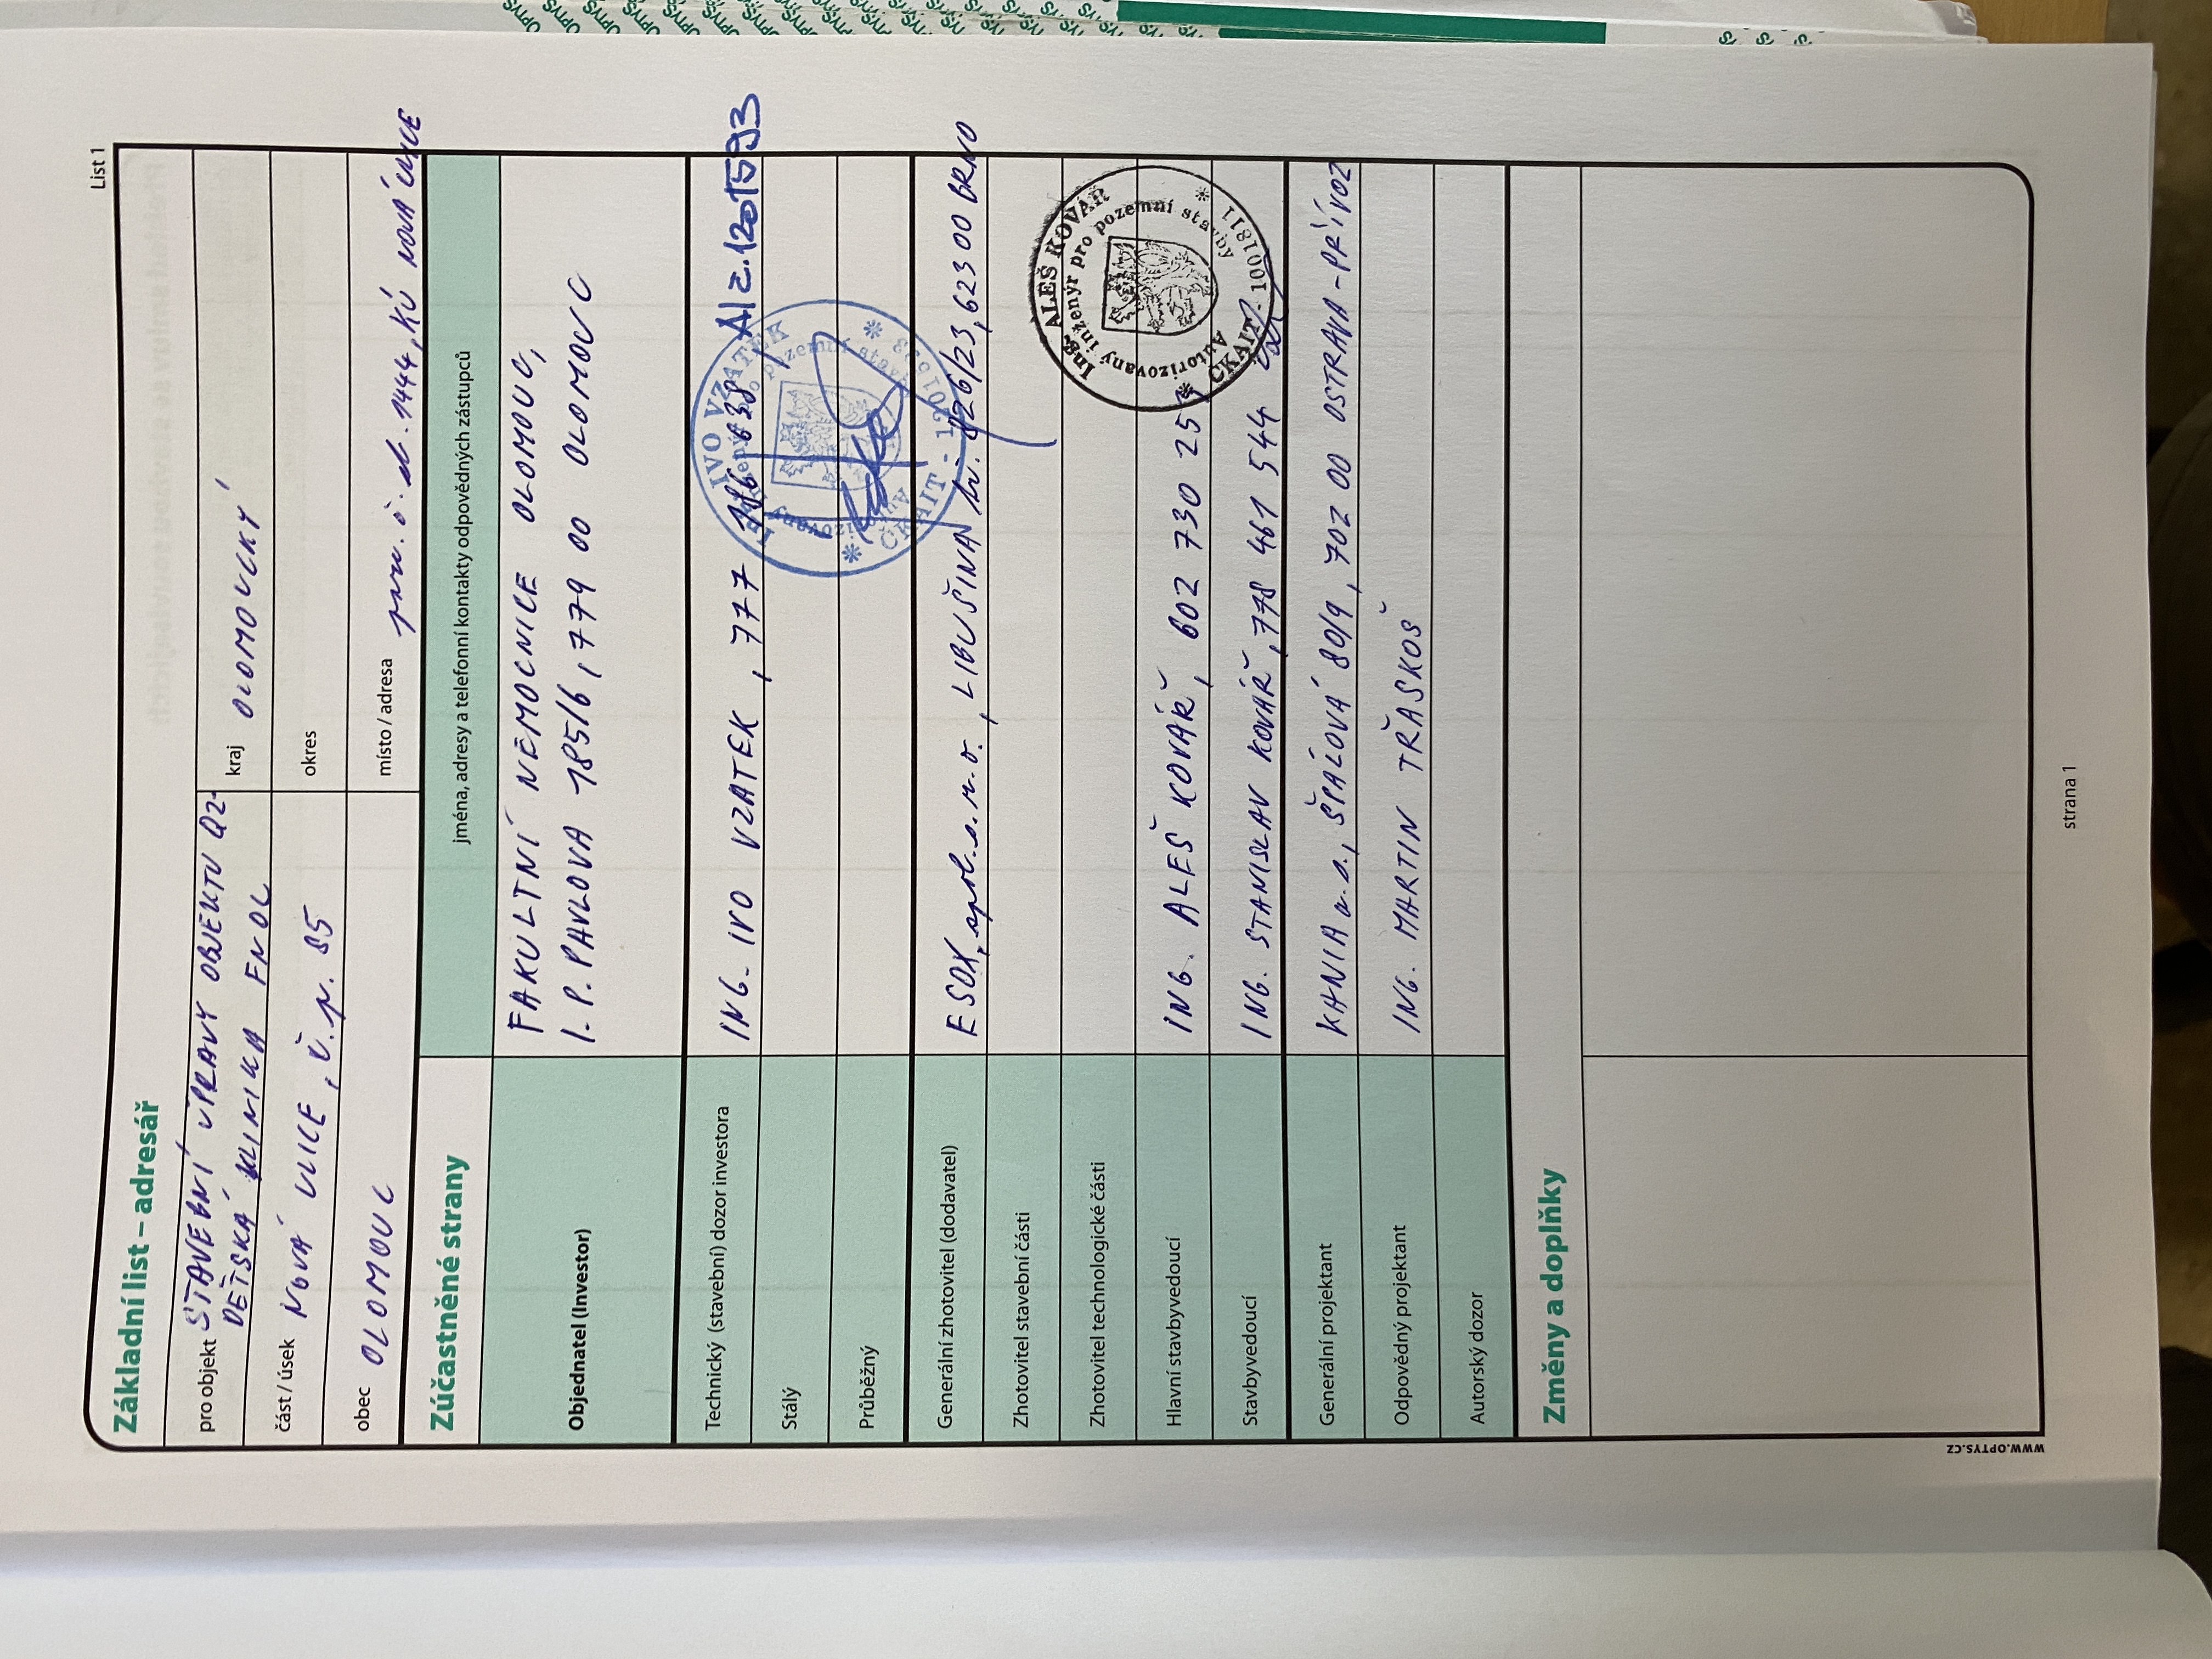 List 1
Základní list – adresář
pro objekt STAVEBNÍ ÚPRAVY OBJEKTU Q2-
DĚTSKÁ KLINIKA FNOL
kraj OLOMOUCKÝ
část / úsek NOVÁ ULICE, č.p. 85
okres
obec OLOMOUC
místo / adresa parc. č. st. 1444, KÚ NOVÁ ULICE
Zúčastněné strany
jména, adresy a telefonní kontakty odpovědných zástupců
Objednatel (Investor)
FAKULTNÍ NEMOCNICE OLOMOUC,
I. P. PAVLOVA 185/6, 779 00 OLOMOUC
Technický (stavební) dozor investora ING. IVO VZATEK, 777
IVO VZATEK
ČKAIT
Stálý
Průběžný
Generální zhotovitel (dodavatel) ESOX, spol. s r. o., LIBUŠINA tř. 826/23, 623 00 BRNO
Zhotovitel stavební části
Zhotovitel technologické části
Hlavní stavbyvedoucí ING. ALEŠ KOVÁŘ, 602 730 257
Ing. ALEŠ KOVÁŘ
Autorizovaný inženýr pro pozemní stavby
ČKAIT - 1001811
Stavbyvedoucí ING. STANISLAV KOVÁŘ, 778 461 544
Generální projektant KANIA a.s., ŠPÁLOVÁ 80/9, 702 00 OSTRAVA - PŘÍVOZ
Odpovědný projektant ING. MARTIN TŘASKOŠ
Autorský dozor
Změny a doplňky
WWW.OPTYS.CZ
strana 1